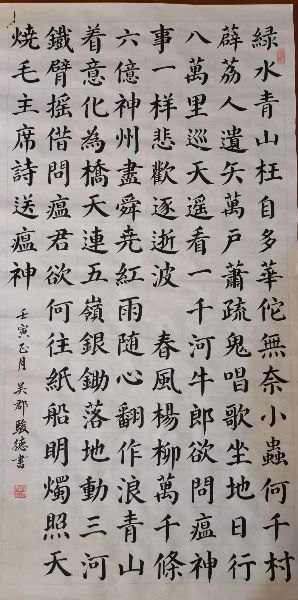 綠水青山枉自多華佗無奈小蟲何千村
薜荔人遺矢萬戶蕭疏鬼唱歌坐地日行
八萬里巡天遙看一千河牛郎欲問瘟神
事一样悲歡逐逝波 春風楊柳萬千條
六億神州盡舜尭紅雨随心翻作浪青山
着意化為橋天連五嶺銀鋤落地動三河
鐵臂摇借問瘟君欲何往紙船明燭照天
燒毛主席詩送瘟神
壬寅正月 吴郡駿德書